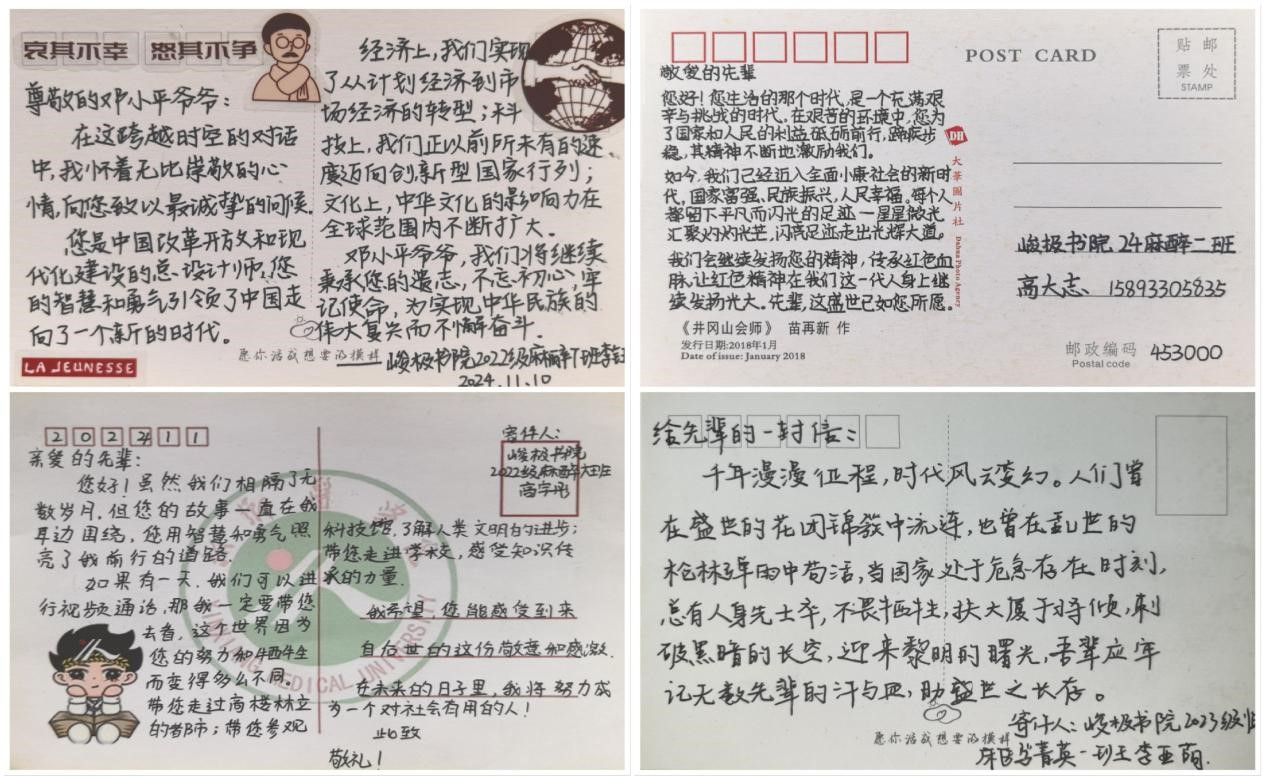 哀其不幸 怒其不争
尊敬的邓小平爷爷：
在这跨越时空的对话
中，我怀着无比崇敬的心
情，向您致以最诚挚的问候。
您是中国改革开放和现
代化建设的总设计师，您
的智慧和勇气引领了中国走
向了一个新的时代。
LA JEUNESSE
经济上，我们实现
了从计划经济到市
场经济的转型；科
技上，我们正以前所未有的速
度迈向创新型国家行列；
文化上，中华文化的影响力在
全球范围内不断扩大。
邓小平爷爷，我们将继续
秉承您的遗志，不忘初心，牢
记使命，为实现中华民族的
伟大复兴而不懈奋斗。
愿你活成想要的模样
——峻极书院2022级麻醉丁班李
2024.11.10
POST CARD
贴 邮
票 处
STAMP
敬爱的先辈
您好！您生活的那个时代，是一个充满艰
辛与挑战的时代。在艰苦的环境中，您为
了国家和人民的利益砥砺前行，蹄疾步
稳，其精神不断地激励我们。
如今，我们已经迈入全面小康社会的新时
代，国家富强、民族振兴，人民幸福。每个人
都留下平凡而闪光的足迹——星星微光
汇聚灼灼光芒，闪亮足迹走出光辉大道。
我们会继续发扬您的精神，传承红色血
脉，让红色精神在我们这一代人身上继
续发扬光大。先辈，这盛世已如您所愿。
DH
大華圖片社
Dahua Photo Agency
峻极书院 24麻醉二班
高大志 15893305835
《井冈山会师》 苗再新 作
发行日期:2018年1月
Date of issue: January 2018
邮政编码 453000
Postal code
202411
亲爱的先辈：
您好！虽然我们相隔了无
数岁月，但您的故事一直在我
耳边围绕，您用智慧和勇气照
亮了我前行的道路。
如果有一天，我们可以进
行视频通话，那我一定要带您
去看，这个世界因为
您的努力和牺牲
而变得多么不同。
带您走过高楼林立
的都市；带您参观
寄件人：
峻极书院
2022级麻醉大班
高宇彤
科技馆，了解人类文明的进步；
带您走进学校，感受知识传
承的力量。
我希望，您能感受到来
自后世的这份敬意和感激。
在未来的日子里，我将努力成
为一个对社会有用的人！
此致
敬礼！
MEDICAL UNIVERSITY
给先辈的一封信：
千年漫漫征程，时代风云变幻。人们曾
在盛世的花团锦簇中流连，也曾在乱世的
枪林弹雨中苟活，当国家处于危急存在时刻，
总有人身先士卒，不畏牺牲，扶大厦于将倾，刺
破黑暗的长空，迎来黎明的曙光，吾辈应牢
记无数先辈的汗与血，助盛世之长存。
愿你活成想要的模样
寄件人：峻极书院2023级临
床医学菁英一班王李亚萌.